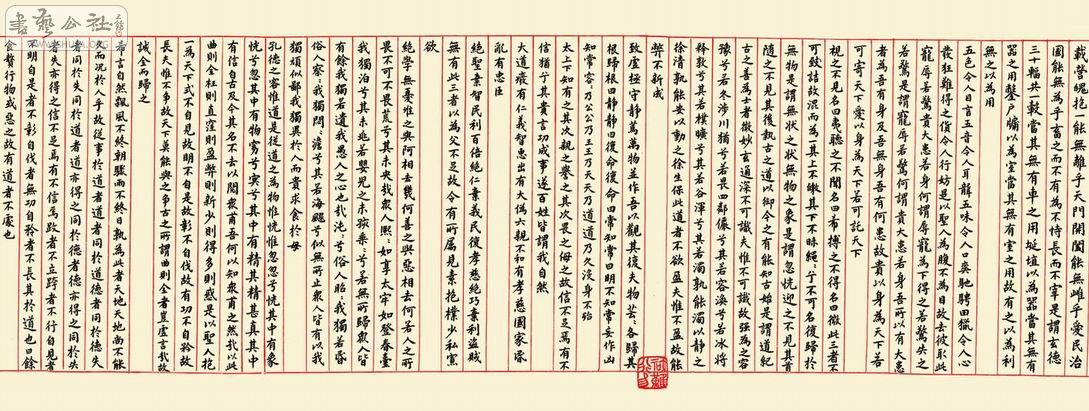 載營魄抱一能無離乎天門開闔能無雌乎愛民治
國能無為乎畜之而不有為不恃長而不宰是謂玄德
三十輻共一轂當其無有車之用埏埴以為器當其無有
器之用鑿戶牖以為室當其無有室之用故有之以為利
無之以為用
五色令人目盲五音令人耳聾五味令人口爽馳騁田獵令人心
發狂難得之貨令人行妨是以聖人為腹不為目故去彼取此
寵辱若驚貴大患若身何謂寵辱寵為下得之若驚失之
若驚是謂寵辱若驚何謂貴大患若身吾所以有大患
者為吾有身及吾無身吾有何患故貴以身為天下若
可寄天下愛以身為天下若可託天下
視之不見名曰夷聽之不聞名曰希搏之不得名曰微此三者不
可致詰故混而為一其上不皦其下不昧繩〻兮不可名復歸於
無物是謂無狀之狀無物之象是謂忽恍迎之不見其首
隨之不見其後執古之道以御今之有能知古始是謂道紀
古之善為士者微妙玄通深不可識夫惟不可識故強為之容
豫兮若冬涉川猶兮若畏四鄰儼兮其若容渙兮若冰將
釋敦兮其若樸曠兮其若谷渾兮其若濁孰能濁以靜之
徐清孰能安以動之徐生保此道者不欲盈夫惟不盈故能
弊不新成
致虛極守靜篤萬物並作吾以觀其復夫物芸〻各歸其
根歸根曰靜靜曰復命復命曰常知常曰明不知常妄作凶
知常容乃公公乃王王乃天天乃道道乃久沒身不殆
太上下知有之其次親之譽之其次畏之侮之故信不足焉有不
信猶兮其貴言功成事遂百姓皆謂我自然
大道廢有仁義智惠出有大偽六親不和有孝慈國家昏
亂有忠臣
絕聖棄智民利百倍絕仁棄義民復孝慈絕巧棄利盜賊
無有此三者以為文不足故令有所屬見素抱樸少私寡
欲
絕學無憂唯之與阿相去幾何善之與惡相去何若人之所
畏不可不畏荒兮其未央哉眾人熙〻如享太牢如登春臺
我獨泊兮其未兆若嬰兒之未孩乘〻兮若無所歸眾人皆
有餘我獨若遺我愚人之心也哉沌〻兮俗人昭〻我獨若昏
俗人察〻我獨悶〻澹兮其若海飂兮似無所止眾人皆有以我
獨頑似鄙我獨異於人而貴求食於母
孔德之容惟道是從道之為物惟恍惟忽忽兮恍其中有象
恍兮忽其中有物窈兮冥兮其中有精其精甚真其中
有信自古及今其名不去以閱眾甫吾何以知眾甫之然哉以此
曲則全枉則直窪則盈弊則新少則得多則惑是以聖人抱
一為天下式不自見故明不自是故彰不自伐故有功不自矜故
長夫惟不爭故天下莫能與之爭古之所謂曲則全者豈虛言哉故
誠全而歸之
希言自然飄風不終朝驟雨不終日孰為此者天地天地尚不能
久而況於人乎故從事於道者道者同於道德者同於德失
者同於失同於道者道亦得之同於德者德亦得之同於失
者失亦得之信不足焉有不信焉跂者不立跨者不行自見者
不明自是者不彰自伐者無功自矜者不長其於道也曰餘
食贅行物或惡之故有道者不處也
書藝公社